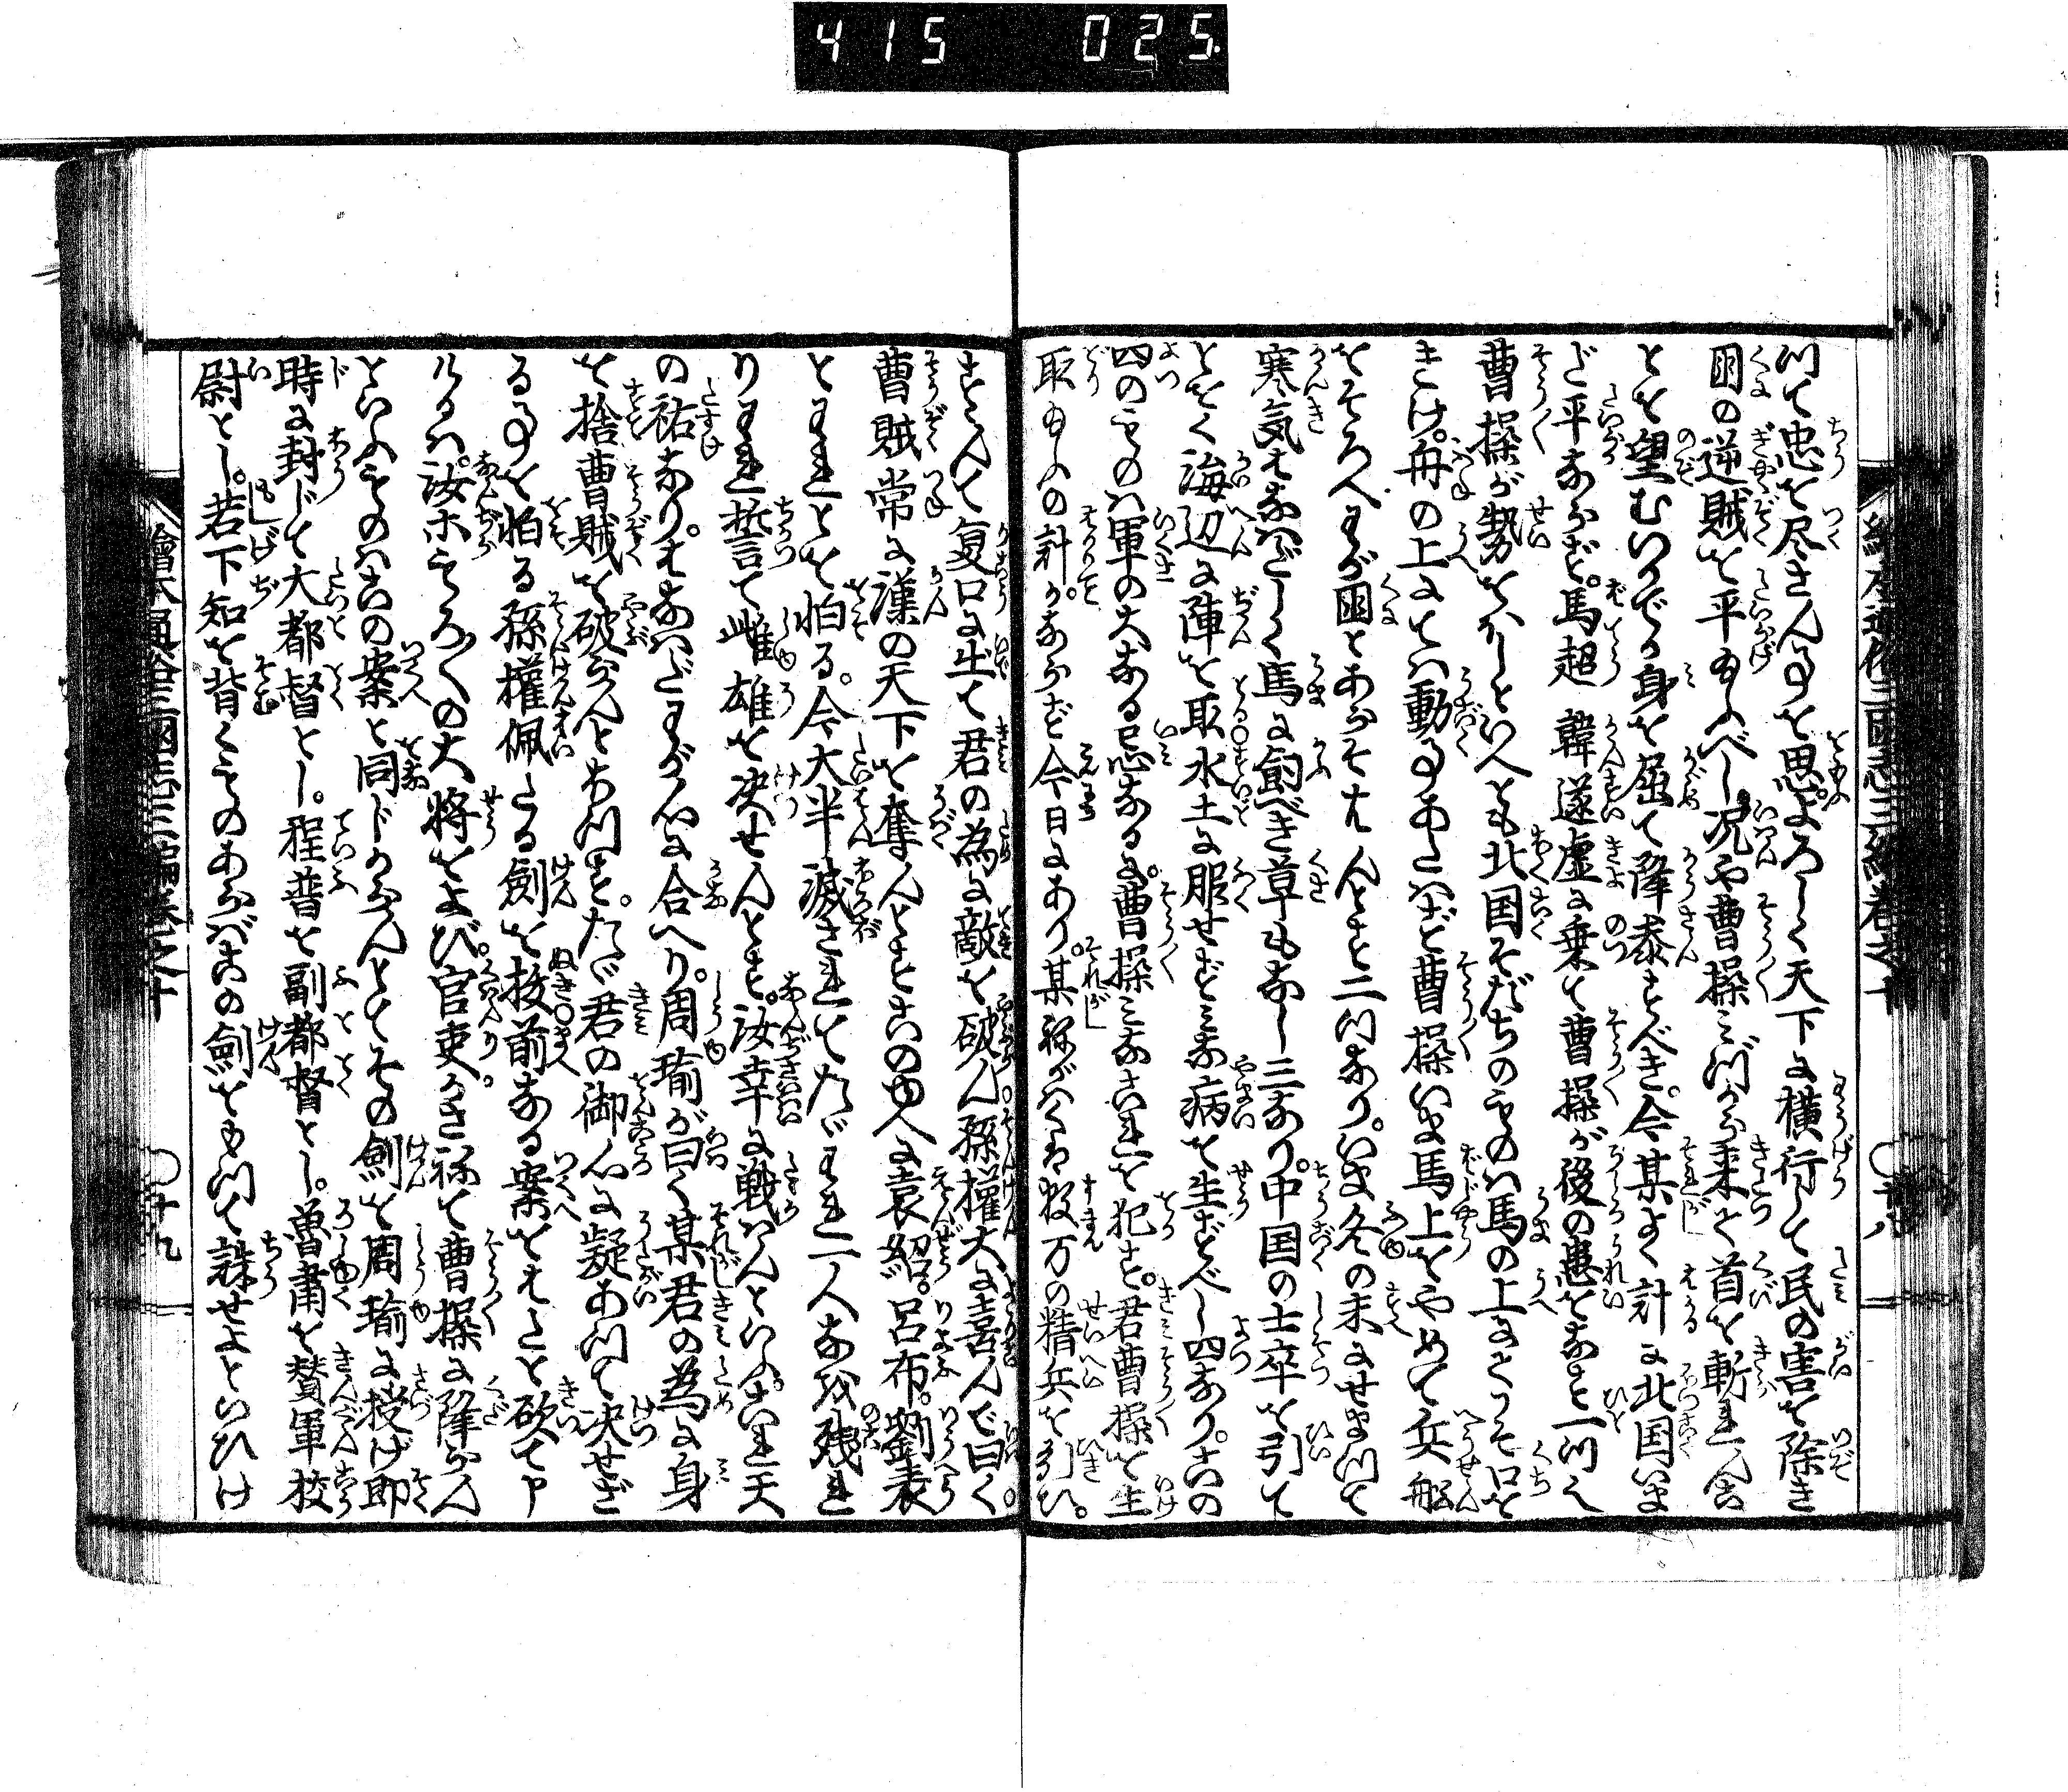 415 025
川て忠を尽さん事を思ふよろしく天下に横行して民の害を除き
国の逆賊を平給ふべし况や曹操みづから来て首を斬れん
ことを望むいかでか身を屈て降参すべき。今某よく計に北国いま
だ平ならず。馬超韓遂虚に乗て曹操が後の患をなす一川
曹操が勢をほしといへども北国そだちのものハ馬の上にこそ口を
きけ。舟の上にてハ動事あたハず曹操いま馬上をやめて兵船
をそろへわが国とあらそハんとす二川なり。いま冬の末にせまつて
寒気はなハだしく馬に飼べき草もなし三なり。中国の士卒を引て
とをく海辺に陣を取水土に服せずミな病を生ずべし四なり。この
四のものハ軍の大なる忌なるに。曹操ミなこれを犯す。君曹操を生
取給ふの計ならず今日にあり。某ねがハくは数万の精兵を引ひ。
すゝんで夏口に出て君の為に敵を破ん孫權大に喜んで曰く。
曹賊常に漢の天下を奪んとすこのゆへに袁紹。呂布。劉表
とわれとを怕る。今大半滅されてたゞわれ一人なを残れ
りわれ誓て雌雄を決せんとす。汝幸に戦ハんといふ。これ天
の祐なり。はなハだわが心に合へり。周瑜が曰く某君の為に身
を捨曹賊を破らんとおもへど。たゞ君の御心に疑あつて决せざ
る事を怕る孫權佩たる劍を抜前なる案をはたと砍て申
けるハ。汝ホもろ〱の大将をよび。官吏かさねて曹操に降らん
といふものハこの案と同じからんとてその劍を周瑜に授げ即
時に封じて大都督とし。程普を副都督とし。魯肅を賛軍校
尉とし。若下知を背くものあらばこの劍をもつて誅せよといひけ
繪本通俗三國志三編卷之十
〇十八
繪本通俗三國志三編卷之十
〇十九